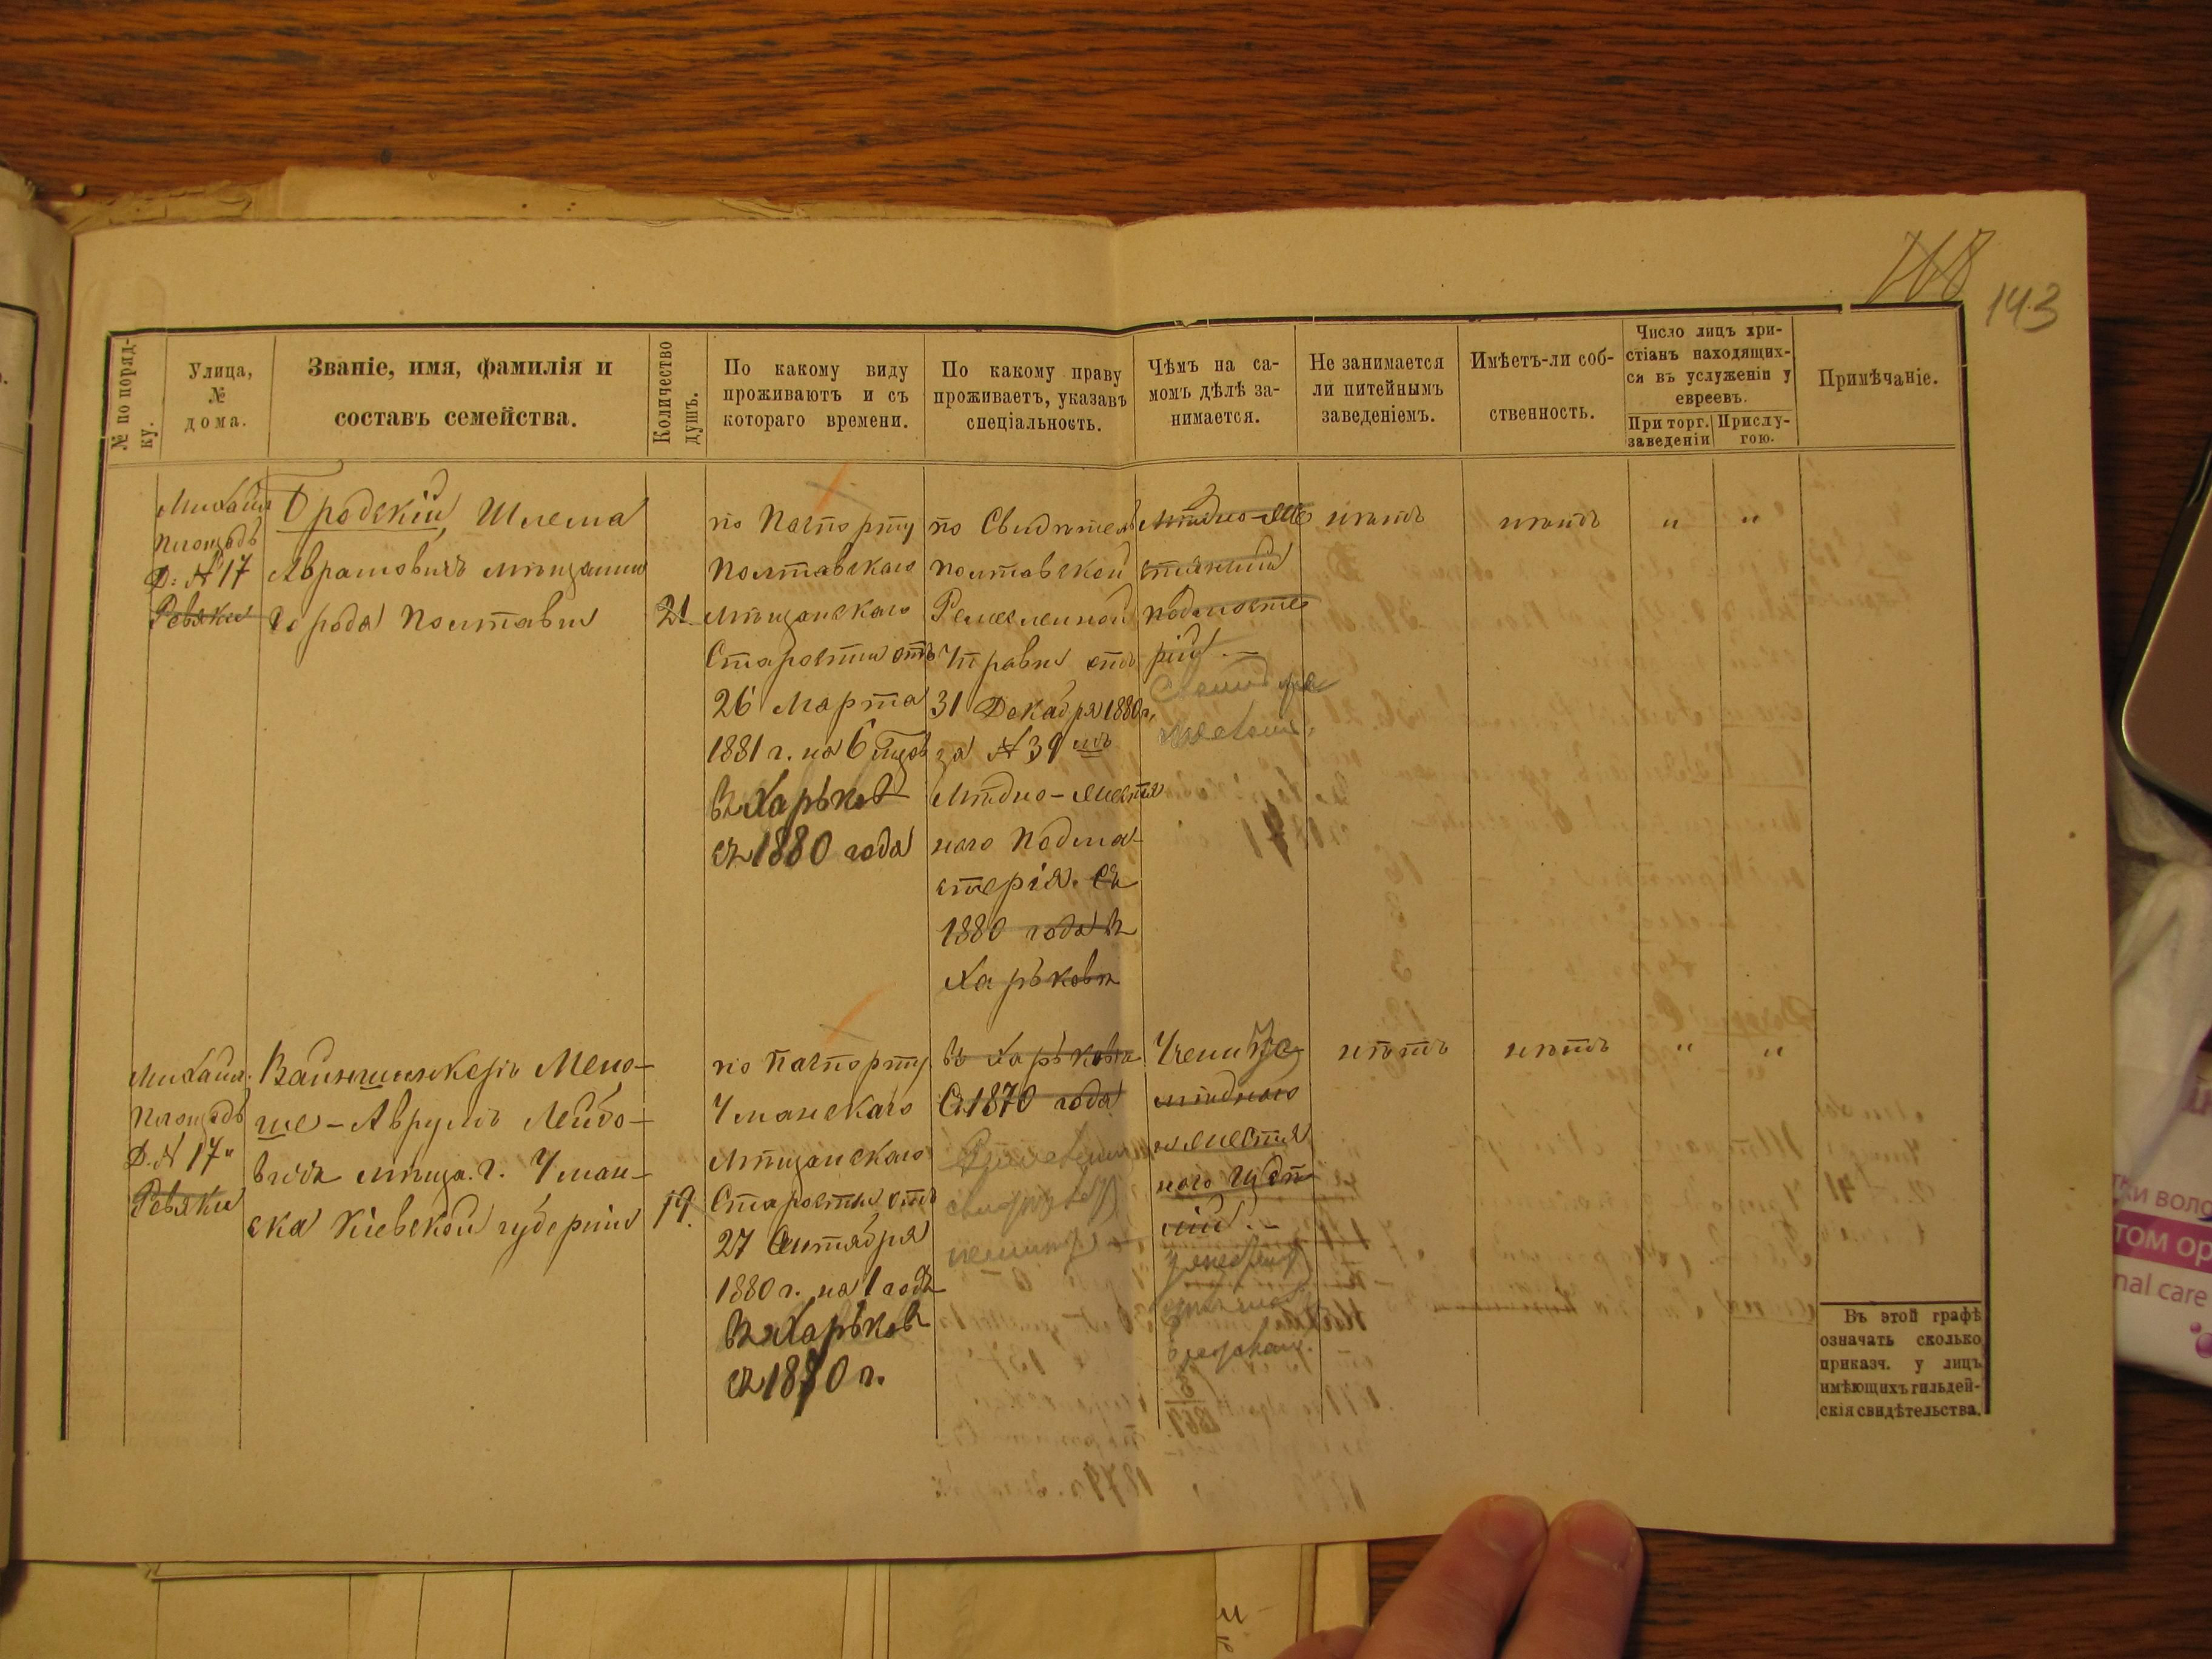 143
№ по поряд-
ку.
Улица,
№
дома.
Званіе, имя, фамилія и
составъ семейства.
Количество
душъ.
По какому виду
проживаютъ и съ
котораго времени.
По какому праву
проживаетъ, указавъ
спеціальность.
Чѣмъ на са-
момъ дѣлѣ за-
нимается.
Не занимается
ли питейнымъ
заведеніемъ.
Имѣетъ-ли соб-
ственность.
Число лицъ хри-
стіанъ находящих-
ся въ услуженіи у
евреевъ.
При торг.
заведеніи
Прислу-
гою.
Примѣчаніе.
Михайл
площадь
Д: № 17
Ревяки
Бродскій, Шлема
Аврамовичъ мѣщанин
города Полтавы
21
по Паспорту
Полтавскаго
Мѣщанскаго
Старосты отъ
26 Марта
1881 г. на 6 мѣцов
въ Харьков
съ 1880 года
по Свидѣтел
Полтавской
Ремесленной
Управы отъ
31 Декабря 1880 г.
за № 39
Мѣдно-жестя
наго Подма-
стерія. Съ
1880 года въ
Харьковѣ
Мѣдно-же
стяный
подмасте
рій. —
нѣтъ
нѣтъ
"
"
Михайл.
площадь
Д. № 17"
Ревяки
Вайншенкеръ Мено-
ше-Аврумъ Лейбо-
вичъ мѣща. г. Уман-
ска Кіевской губерніи
19.
по Паспорту
Уманскаго
Мѣщанскаго
Старосты отъ
27 Сентября
1880 г. на 1 годъ
въ Харьков
съ 1870 г.
въ Харьковѣ
Съ 1870 года
Ученик
мѣднаго
и жестя
наго
нѣтъ
нѣтъ
"
"
Въ этой графѣ
означать сколько
приказч. у лицъ
имѣющихъ гильдей-
скія свидѣтельства.
тки воло
том ор
nal care